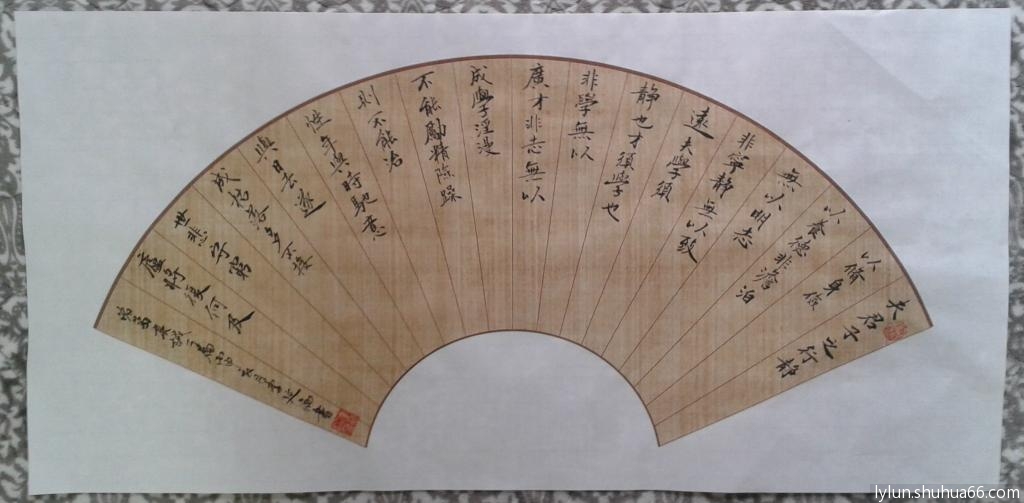 夫君子之行静
以脩身儉
以養德非澹泊
無以明志
非寧静無以致
遠夫學須
静也才須學也
非學無以
廣才非志無以
成學淫漫
不能勵精險躁
則不能治
性年與時馳意
與日去遂
成枯落多不接
世悲守窮
廬將復何及
lylun.shuhua66.com